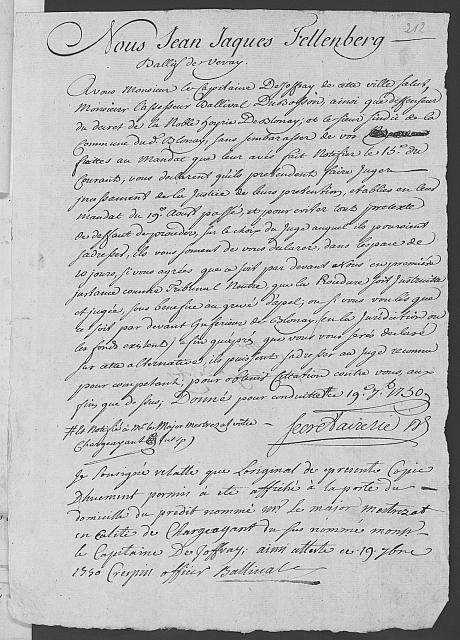 212
Nous Jean Jaques Fellenberg
Ballif de Vevay.
A vous Monsieur le Capitaine DeJoffray de cete ville Salut,
Monsieur l'assesseur Ballival DuBosson, ainsi que deffenseur
du decret de la Noble hoirie DeBlonay, et le Sieur Sindic de la
Commune du d. Blonay, sans sembarasser de vos
faittes au Mandat que leur avés fait Notifier le 15e du
Courant, vous declarent quils pretendent faire Juger
incessement de la Justice de leurs pretention, etablies en leur
Mandat du 19e aout passé et pour eviter tout pretexte
de deffaut de proceder, sur le choix du Juge auquel ils pouroient
sadresser, ils vous somment de vous declarer, dans lespace de
10 jours, si vous agréés que ce soit par devant Nous en premiere
instance comme Tribunal Neutre, que la Procedure soit Instruitte
et jugée, sous benefice au grevé d'apel; ou si vous voulés que
ce soit par devant de Blonay, en la Juridiction ou
les fonds existent, afin que vous vous serés declaré
sur cete alternative, ils puissent sadresser au Juge reconnu
pour competant; pour obtenir Citation contre vous, aux
fins que de sus; Donné pour conduitte ce 19e 7bre 1750
# le Notifié a Mr le Major mestrezat votre
Chargeayant
Secretairerie
Je Soussigné relatte que Loriginal de presente Copie
Dhuement permis a eté affiché a la porte du
domicille du predit nommé Mr le major mestrezat
en calité de Chargeayant du sus nommé monsr
le Capitaine DeJoffray; ainsi atteste ce 19 7bre
1750 Crespin officier Ballival